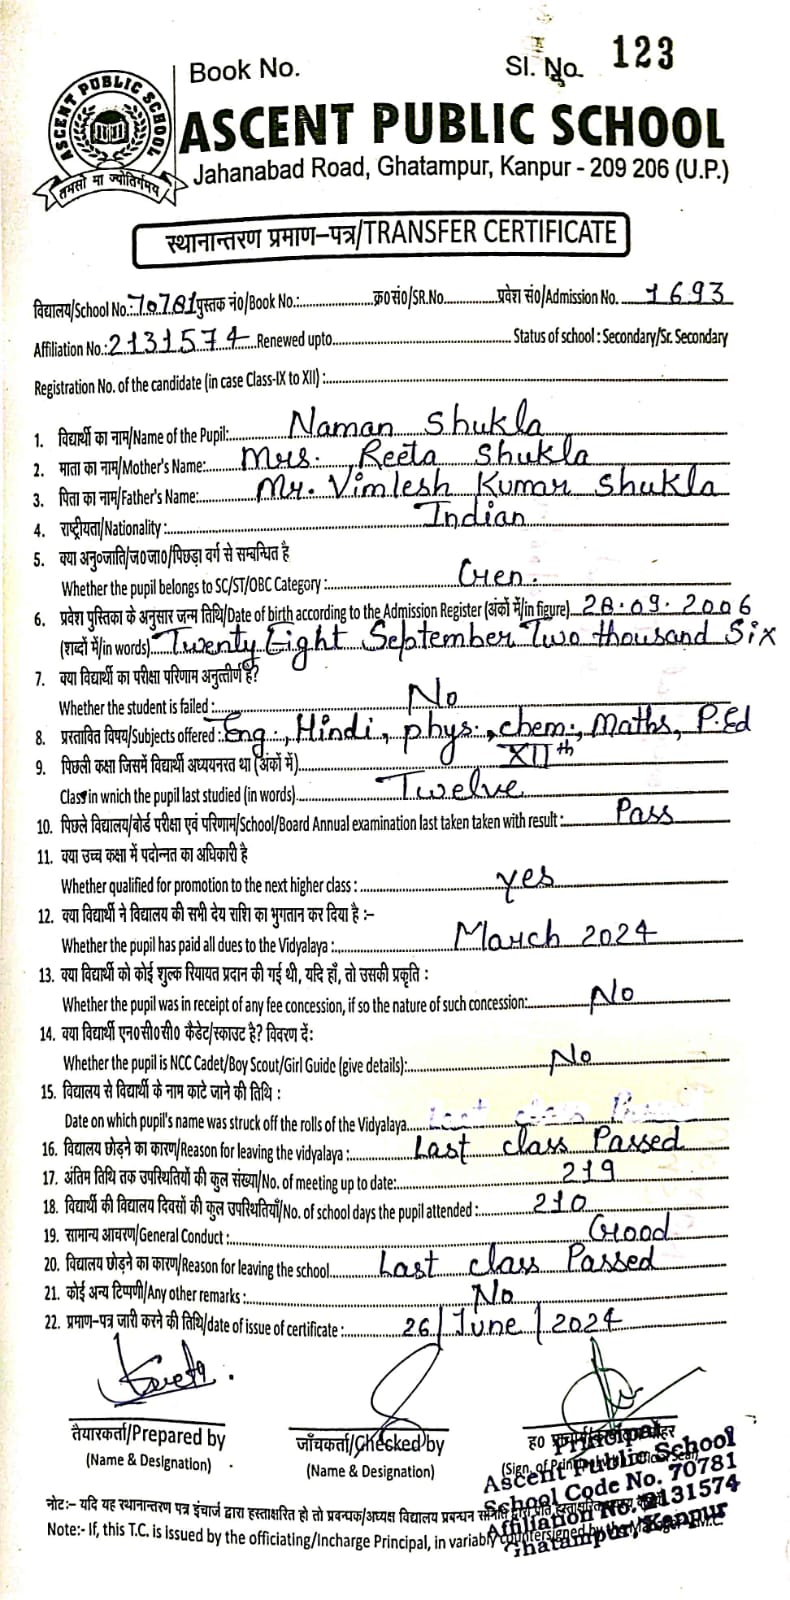 Book No.
Sl. No. 123
ASCENT PUBLIC SCHOOL
तमसो मा ज्योतिर्गमय
ASCENT PUBLIC SCHOOL
Jahanabad Road, Ghatampur, Kanpur - 209 206 (U.P.)
स्थानान्तरण प्रमाण-पत्र/TRANSFER CERTIFICATE
विद्यालय/School No.: 70781 पुस्तक नं०/Book No.: क्र०सं०/SR.No. प्रवेश सं०/Admission No. 1693
Affiliation No.: 2131574 Renewed upto Status of school : Secondary/Sr. Secondary
Registration No. of the candidate (in case Class-IX to XII) :
1. विद्यार्थी का नाम/Name of the Pupil: Naman Shukla
2. माता का नाम/Mother's Name: Mrs. Reeta Shukla
3. पिता का नाम/Father's Name: Mr. Vimlesh Kumar Shukla
4. राष्ट्रीयता/Nationality : Indian
5. क्या अनु०जाति/ज०जा०/पिछड़ा वर्ग से सम्बन्धित है
Whether the pupil belongs to SC/ST/OBC Category : Gen.
6. प्रवेश पुस्तिका के अनुसार जन्म तिथि/Date of birth according to the Admission Register (अंकों में/in figure) 28.09.2006
(शब्दों में/in words) Twenty Eight September Two thousand Six
7. क्या विद्यार्थी का परीक्षा परिणाम अनुत्तीर्ण है?
Whether the student is failed : No
8. प्रस्तावित विषय/Subjects offered : Eng., Hindi, phys., chem., Maths, P.Ed
9. पिछली कक्षा जिसमें विद्यार्थी अध्ययनरत था (अंकों में) XIIth
Class in wnich the pupil last studied (in words) Twelve
10. पिछले विद्यालय/बोर्ड परीक्षा एवं परिणाम/School/Board Annual examination last taken taken with result : Pass
11. क्या उच्च कक्षा में पदोन्नत का अधिकारी है
Whether qualified for promotion to the next higher class : yes
12. क्या विद्यार्थी ने विद्यालय की सभी देय राशि का भुगतान कर दिया है :-
Whether the pupil has paid all dues to the Vidyalaya : March 2024
13. क्या विद्यार्थी को कोई शुल्क रियायत प्रदान की गई थी, यदि हाँ, तो उसकी प्रकृति :
Whether the pupil was in receipt of any fee concession, if so the nature of such concession: No
14. क्या विद्यार्थी एन०सी०सी० कैडेट/स्काउट है? विवरण दें:
Whether the pupil is NCC Cadet/Boy Scout/Girl Guide (give details): No
15. विद्यालय से विद्यार्थी के नाम काटे जाने की तिथि :
Date on which pupil's name was struck off the rolls of the Vidyalaya Last class Passed
16. विद्यालय छोड़ने का कारण/Reason for leaving the vidyalaya : Last class Passed
17. अंतिम तिथि तक उपस्थितियों की कुल संख्या/No. of meeting up to date: 219
18. विद्यार्थी की विद्यालय दिवसों की कुल उपस्थितियाँ/No. of school days the pupil attended : 210
19. सामान्य आचरण/General Conduct : Good
20. विद्यालय छोड़ने का कारण/Reason for leaving the school Last class Passed
21. कोई अन्य टिप्पणी/Any other remarks : No
22. प्रमाण-पत्र जारी करने की तिथि/date of issue of certificate : 26/June/2024
तैयारकर्ता/Prepared by
(Name & Designation)
जाँचकर्ता/Checked by
(Name & Designation)
ह०
(Sign. of
Principal
Ascent Public School
School Code No. 70781
Affiliation No. 2131574
Ghatampur, Kanpur
नोट:- यदि यह स्थानान्तरण पत्र इंचार्ज द्वारा हस्ताक्षरित हो तो प्रबन्धक/अध्यक्ष विद्यालय प्रबन्धन समिति द्वारा
Note:- If, this T.C. is issued by the officiating/Incharge Principal, in variably countersigned by the Manager